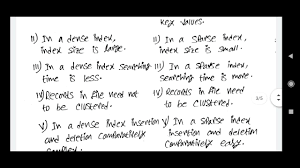 key values.
II) In a dense index, index size is large.
II) In a sparse index, index size is small.
III) In a dense index searching time is less.
III) In a sparse index, searching time is more.
IV) Records in file need not to be clustered.
IV) Records in file need to be clustered.
V) In a dense index insertion and deletion comparatively complex.
V) In a sparse index insertion and deletion comparatively easy.
2/5